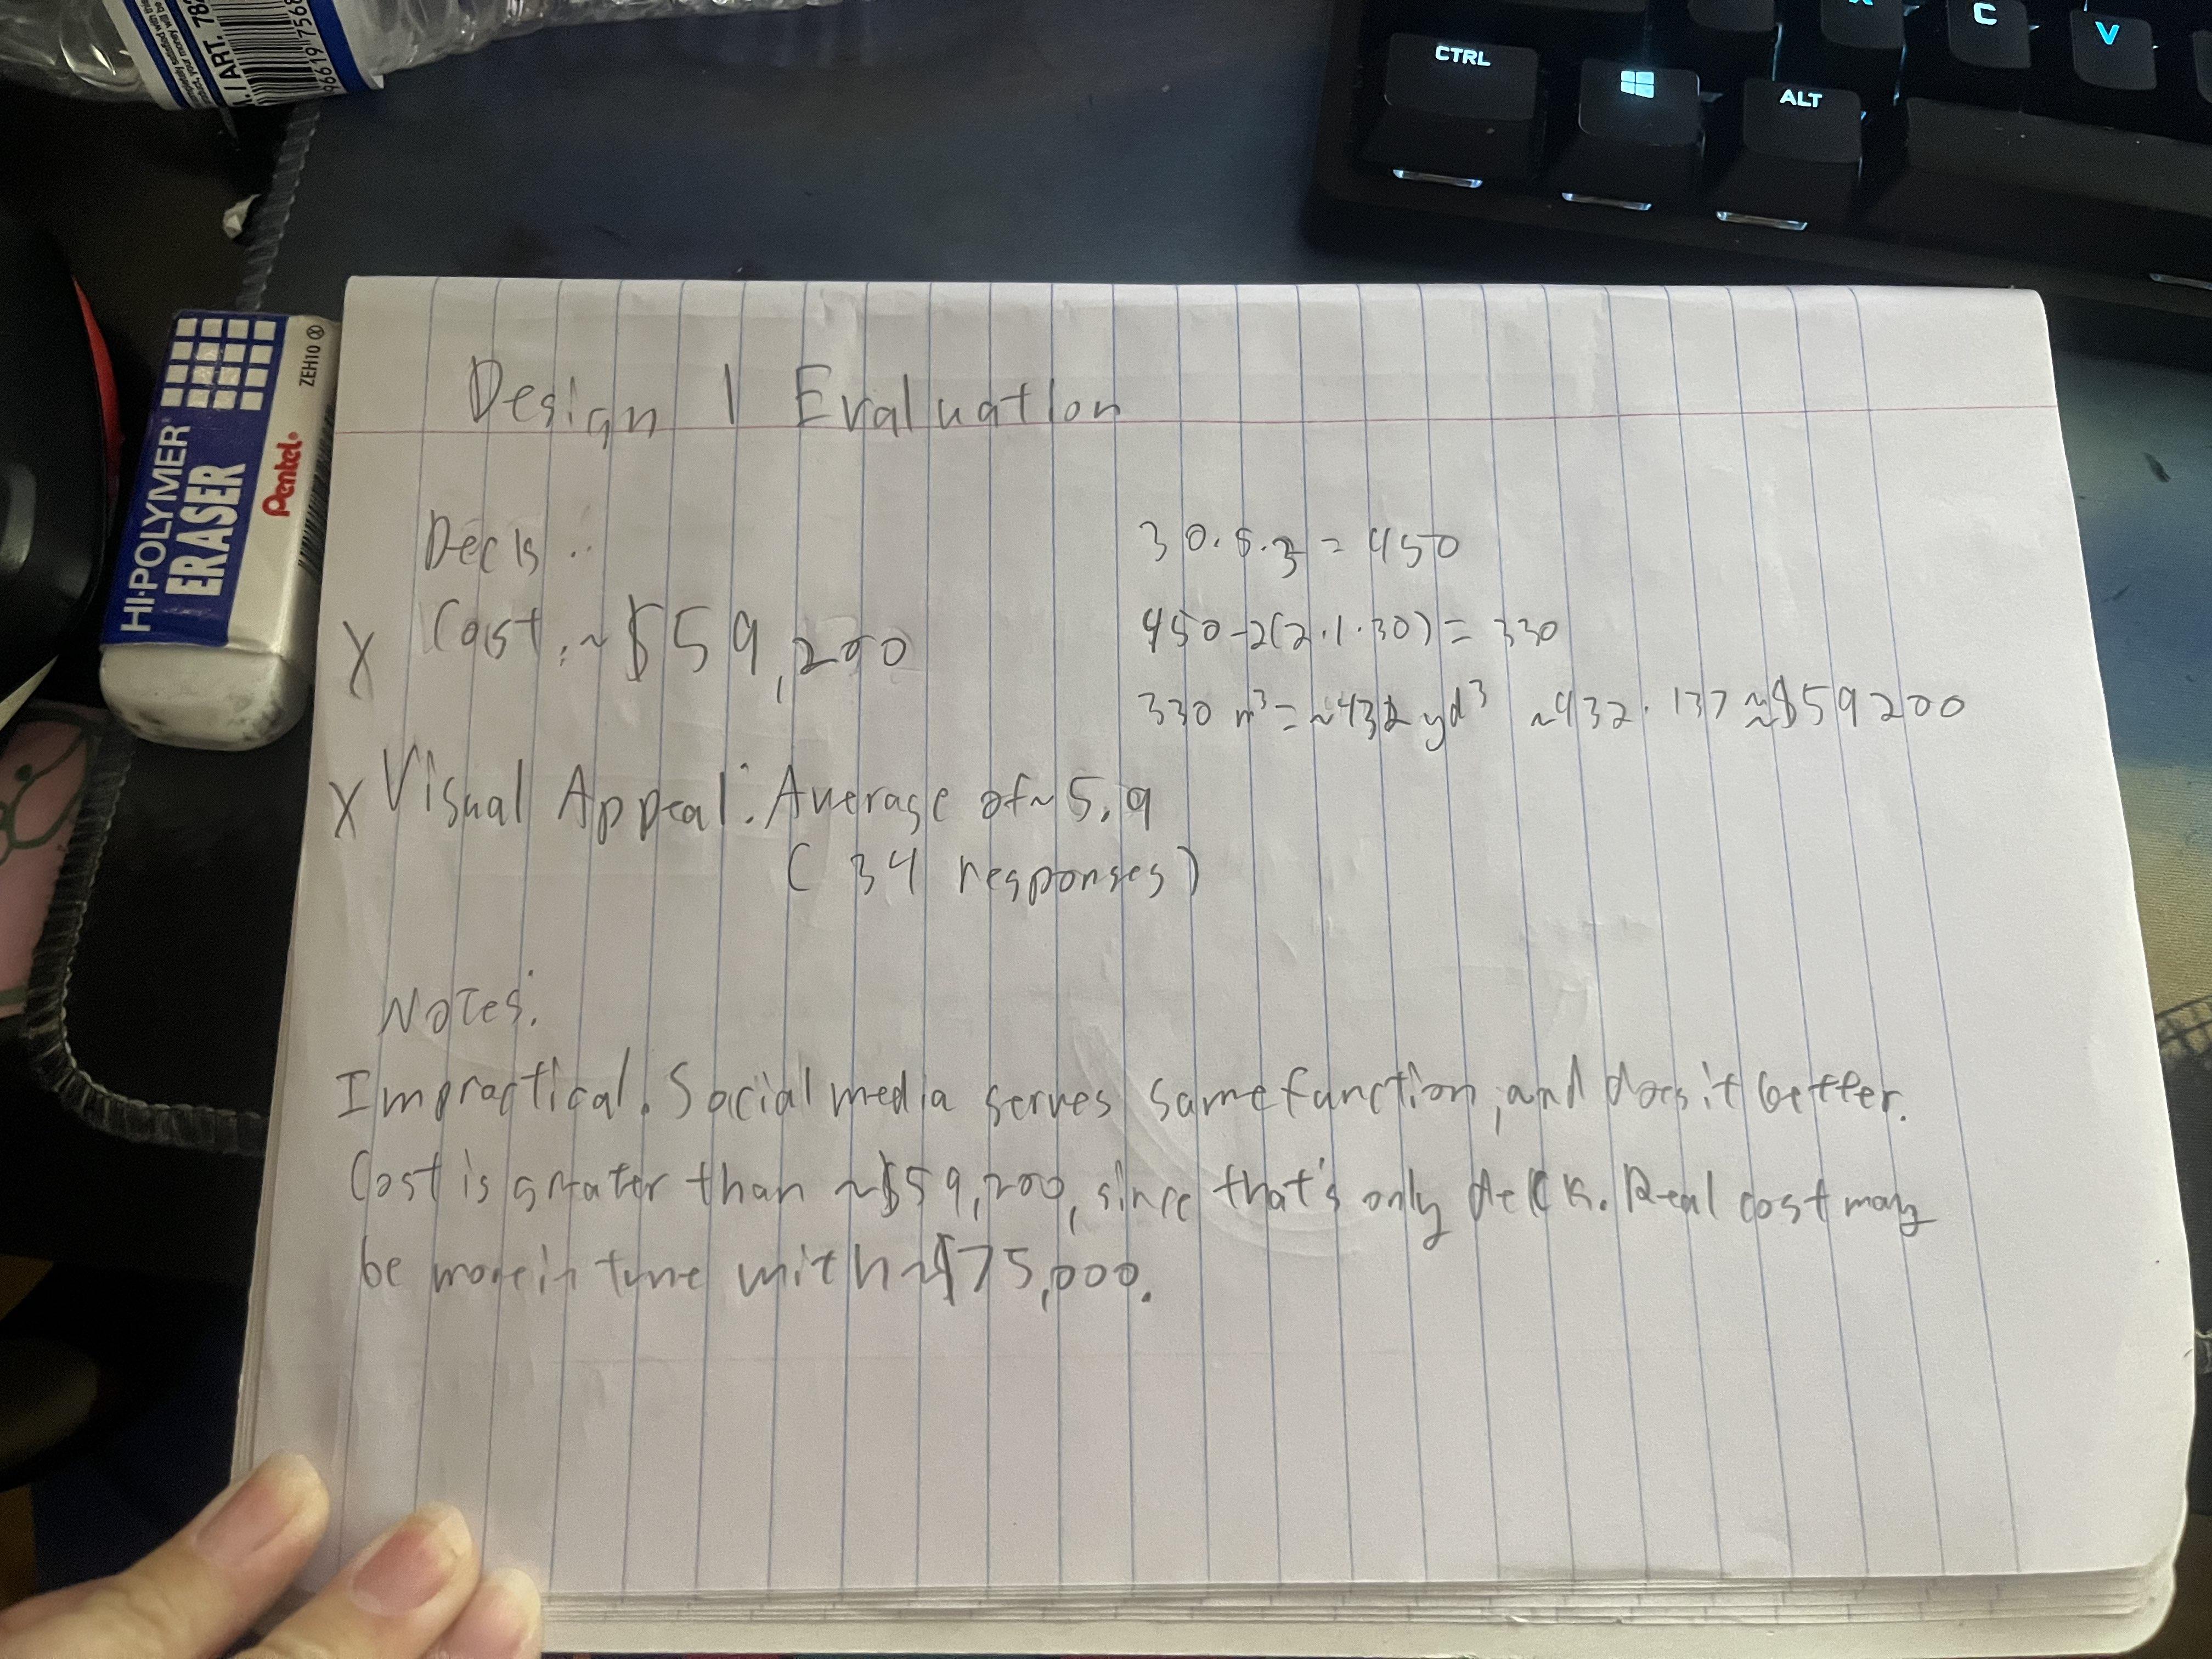 CTRL
ALT
C
V
HI-POLYMER
ERASER
Pentel
ZEH10
Design 1 Evaluation
Deck:
30·5·3 = 450
X Cost: ~$59,200
450-2(2·1·30) = 330
330 m³ = ~432 yd³ ~432·137 ≈ $59200
X Visual Appeal: Average of ~5.9
(34 responses)
Notes:
Impractical. Social media serves same function, and does it better.
Cost is greater than ~$59,200, since that's only deck. Real cost may
be more in tune with ~$75,000.